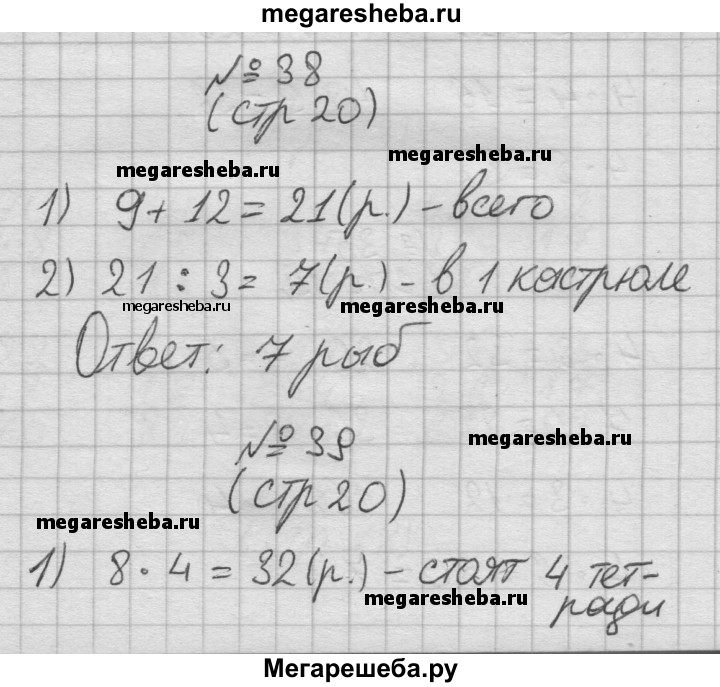 megaresheba.ru
№ 38
(стр 20)
megaresheba.ru
megaresheba.ru
1) 9 + 12 = 21 (р.) - всего
2) 21 : 3 = 7 (р.) - в 1 кастрюле
megaresheba.ru
megaresheba.ru
Ответ: 7 рыб
№ 39
megaresheba.ru
(стр 20)
megaresheba.ru
1) 8 · 4 = 32 (р.) - стоят 4 тет-
megaresheba.ru
ради
Мегарешеба.ру